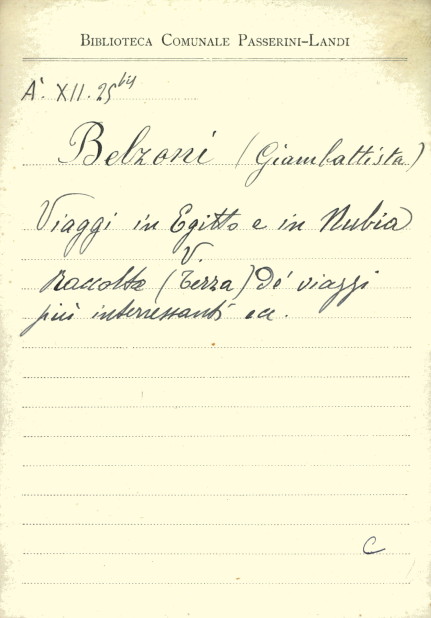 BIBLIOTECA COMUNALE PASSERINI-LANDI
A'. XII. 25 bis
Belzoni (Giambattista)
Viaggi in Egitto e in Nubia
V.
Raccolta (Terza) de' viaggi
più interressanti ecc.
C